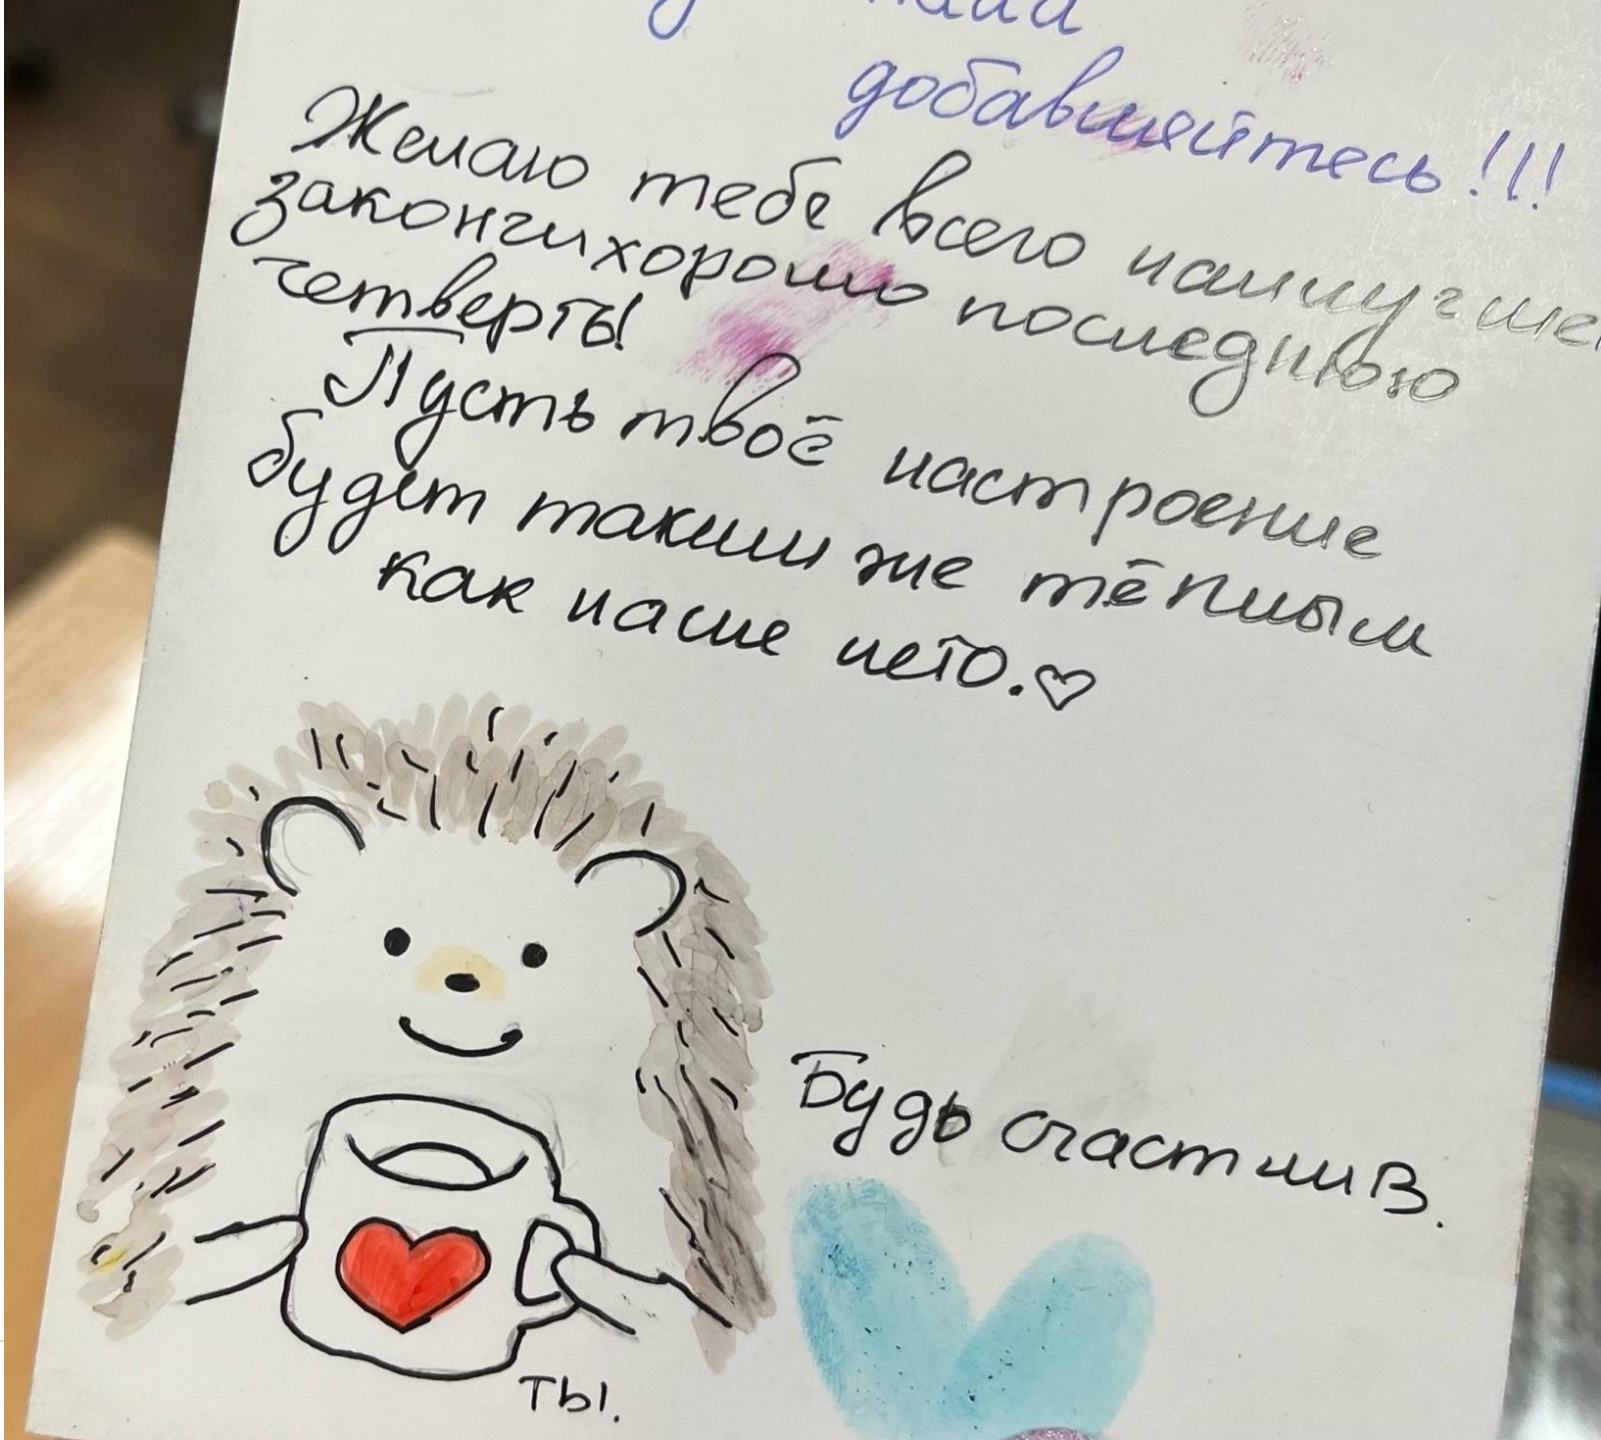 добавляйтесь!!!
Желаю тебе всего наилучше
закончи хорошо последнюю
четверть!
Пусть твоё настроение
будет таким же тёплым
как наше лето.♡
Будь счастлив.
ты.